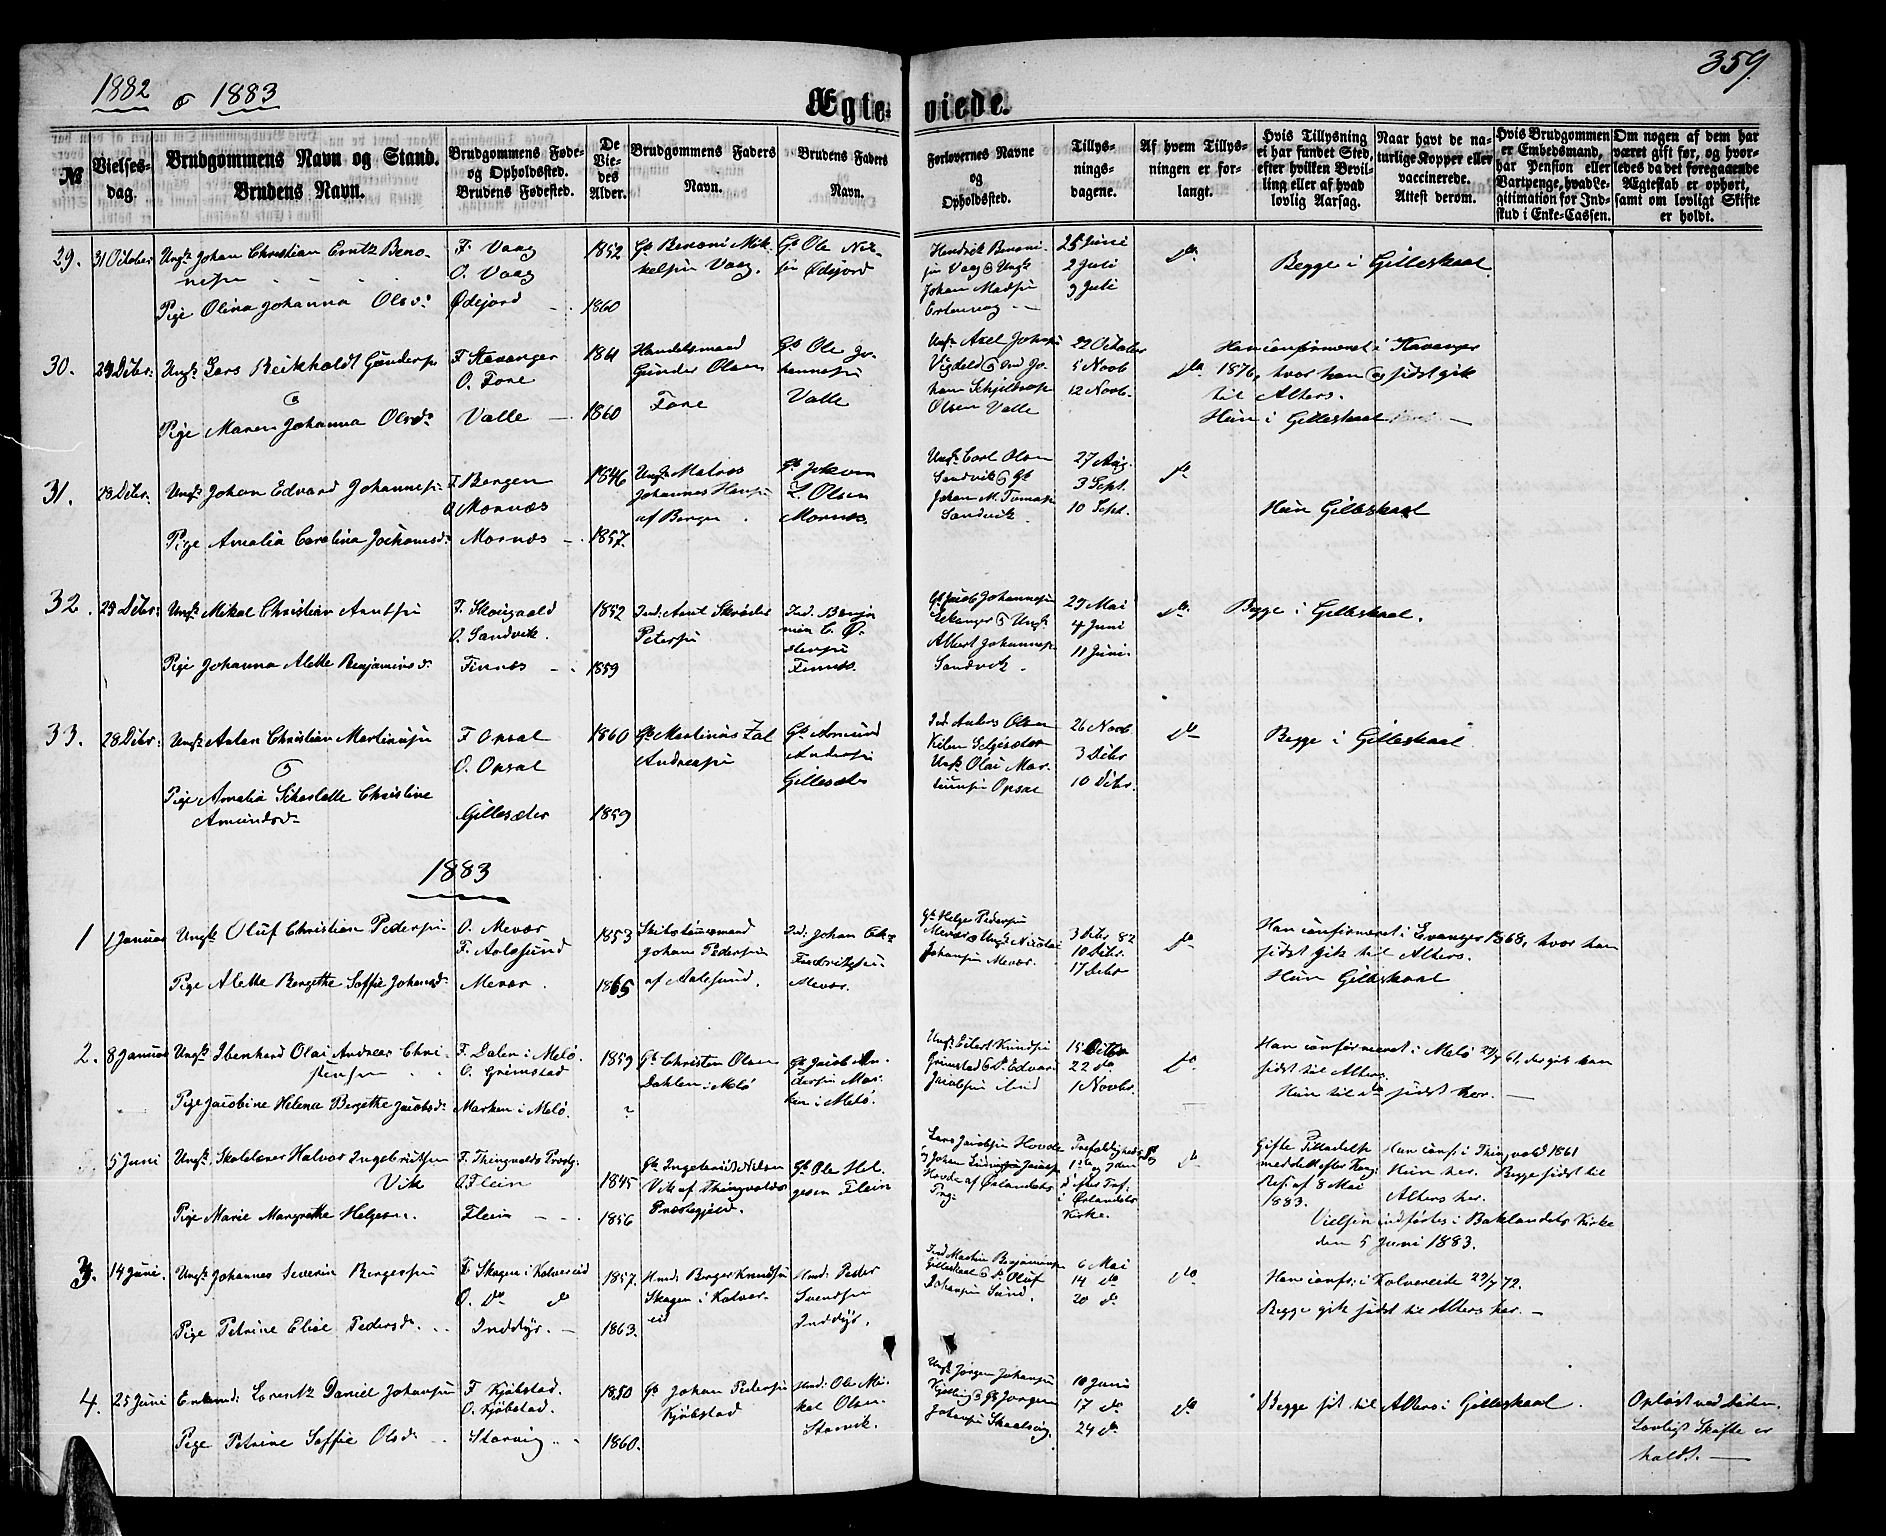 1882 & 1883
359.
Ægte-
viede.
№
Vielses-
dag.
Brudgommens Navn og Stand.
Brudens Navn.
Brudgommens Føde-
og Opholdssted.
Brudens Fødested.
De
Vie-
des
Alder.
Brudgommens Faders
Navn.
Brudens Faders
Navn.
Forlovernes Navne
og
Opholdssted.
Tillys-
nings-
dagene.
Af hvem Tillys-
ningen er for-
langt.
Hvis Tillysning
ei har fundet Sted,
efter hvilken Bevil-
ling eller af hvad
lovlig Aarsag.
Naar havt de na-
turlige Kopper eller
vaccinerede.
Attest derom.
Hvis Brudgommen
er Embedsmand,
har Pension eller
Vartpenge, hvad Le-
gitimation for Ind-
skud i Enke-Cassen.
Om nogen af dem har
været gift før, og hvor-
ledes da det foregaaende
Ægteskab er ophørt,
samt om lovligt Skifte
er holdt.
29. 31 October Ungk. Johan Christian Erntz Beno-
nisen
Pige Olina Johanna Olsd.
F. Vaag
O. Vaag
Ødejord
1852
1860
Gb. Benoni Mik-
kelsen Vaag.
Gb. Ole Nil-
sen Ødejord
Hendrik Benoni-
sen Vaag & Ungk.
Johan Madsen
25 Juni
2 Juli
9 Juli
do.
Begge i Gilleskaal.
30. 29 Decbr. Ungk. Lars Reikholdt Gundersen
&
Pige Maren Johanna Olsd.
F. Stavanger
O. Fore
Valle
1861
1860
Handelsmand
Gunder Olsen
Fore
Gb. Ole Jo-
hannesen
Valle
Ungk. Axel Johnsen
Olsen Valle
22 October
5 Novb.
12 Novb.
do.
Han confirmeret i Stavanger
1876, hvor han og sidst gik
til Alters.
Hun i Gilleskaal
31. 28 Decbr. Ungk. Johan Edvard Johannesen
Pige Amalia Carolina Jochumsd.
F. Bergen
O. Mornæs
Mornæs
1846
1857.
Ungk. Matros
Johannes Hansen
af Bergen.
Gb. Jokum
L. Olsen
Mornæs.
Ungk. Carl Olsen
Sandvik & Gb.
Johan M. Tomasen
Sandvik.
27 Aug.
3 Sept.
10 Sept.
do
Hun Gilleskaal
32. 29 Decbr. Ungk. Mikal Christian Arntsen
Pige Johanna Alette Benjaminsd.
O. Sandvik.
Finnæs
1852
1859
Ind. Arnt Skrøder
Petersen
Ind. Benja-
min C. Ø-
stensen
Finnæs.
Gb. Jacob Johannesen
Albert Johannesen
Sandvik.
29 Mai
4 Juni
11 Juni.
do.
Begge i Gilleskaal.
33. 28 Decbr. Ungk. Anton Christian Martinusen
&
Pige Amalia Scharlotte Christine
Amundsd.
F. Opsal
O. Opsal
Gillesæter
1860
1859
Gb. Martinus Zal.
Andreasen
Gb. Amund
Andersen
Gillesæter
Ind. Anders Olsen
Ungk. Olai Mar-
tinusen Opsal
26 Novb.
3 Decbr
10 Decbr.
do
Begge i Gilleskaal
1883
1 1 Januar Ungk. Oluf Christian Pedersen
Pige Alette Bergithe Soffie Johansd.
O. Mevær
F. Aalesund
Mevær.
1853
1865
Johan Pedersen
af Aalesund.
Ind. Johan Chr.
Fredriksen
Mevær.
Gb. Helge Pedersen
Mevær & Ungk. Nicolai
Johansen Mevær.
3 Decbr 82
10 Decbr.
17 Decbr
do
Han confirmeret i Evanger 1868, hvor han
sidst gik til Alters.
Hun Gilleskaal
2. 8 Januar Ungk. Ibenhard Olai Andreas Chri-
stensen
Pige Jacobine Helena Bergithe Jacobsd.
F. Dalen i Melø.
O. Grimstad
Marken i Melø.
1859
Gb. Christen Olsen
Dahlen i Melø
Gb. Jacob An-
dersen Mar-
ken i Melø.
Ungk. Eilert Knudsen
Grimstad & P. Edvard
Jacobsen
15 Octbr
22 do
1 Novbr.
do.
Han confirmeret i Melø 29/9 61, der gik han
sidst til Alters.
Hun til do sidst her.
5 Juni Ungk. Skolelærer Halvor Ingebrigtsen
Vik
Pige Marie Margrethe Helgesen.
F. Thingvolds Prestg.
O. Flein
Flein
1845
1856
Gb. Ingebrigt Nilsen
Vik af Thingvolds
Præstegjeld.
Gb. Ole Hel-
gesen Flein
Lars Jacobsen Hovde
Hovde af Ørlandets
Prg.
i Ørlandets
Kirke.
do.
Gifte Tilladelse
meddelt efter Kongl.
Res. af 8 Mai
1883.
Han conf. i Thingvold 1861
Hun her. Begge sidst til
Alters her.
Vielsen indførtes i Baklandets Kirke
den 5 Juni 1883.
3. 14 Juni. Ungk. Johannes Severin Bergersen
Pige Petrine Elise Pedersd.
F. Skagen i Kolvereid
O. do do
Inddyr.
1857.
1863.
Hmd. Berger Knudsen
Skagen i Kolver-
eid
Hmd. Peder
Svendsen
Inddyr.
Ind. Martin Benjaminsen
Gilleskaal & P. Oluf
Johansen Sund.
6 Mai
14 do
20 do.
do
Han conf. i Kolvereide 29/9 72.
Begge gik sidst til Alters her.
4. 25 Juni Enkemd. Lorentz Daniel Johansen
Pige Petrine Soffie Olsd.
F. Kjøbstad.
O. Kjøbstad.
Storvig
1850
1860.
Gb. Johan Pedersen
Kjøbstad
Hmd. Ole Mi-
kal Olsen
Storvik.
Ungk. Jørgen Johansen
Kjelling & Gb. Jørgen
Johansen Skaalsvig.
10 Juni
17 do
24 do
do
Begge sidst til Alters i Gilleskaal.
Opløst ved Døden.
Lovligt Skifte er
holdt.